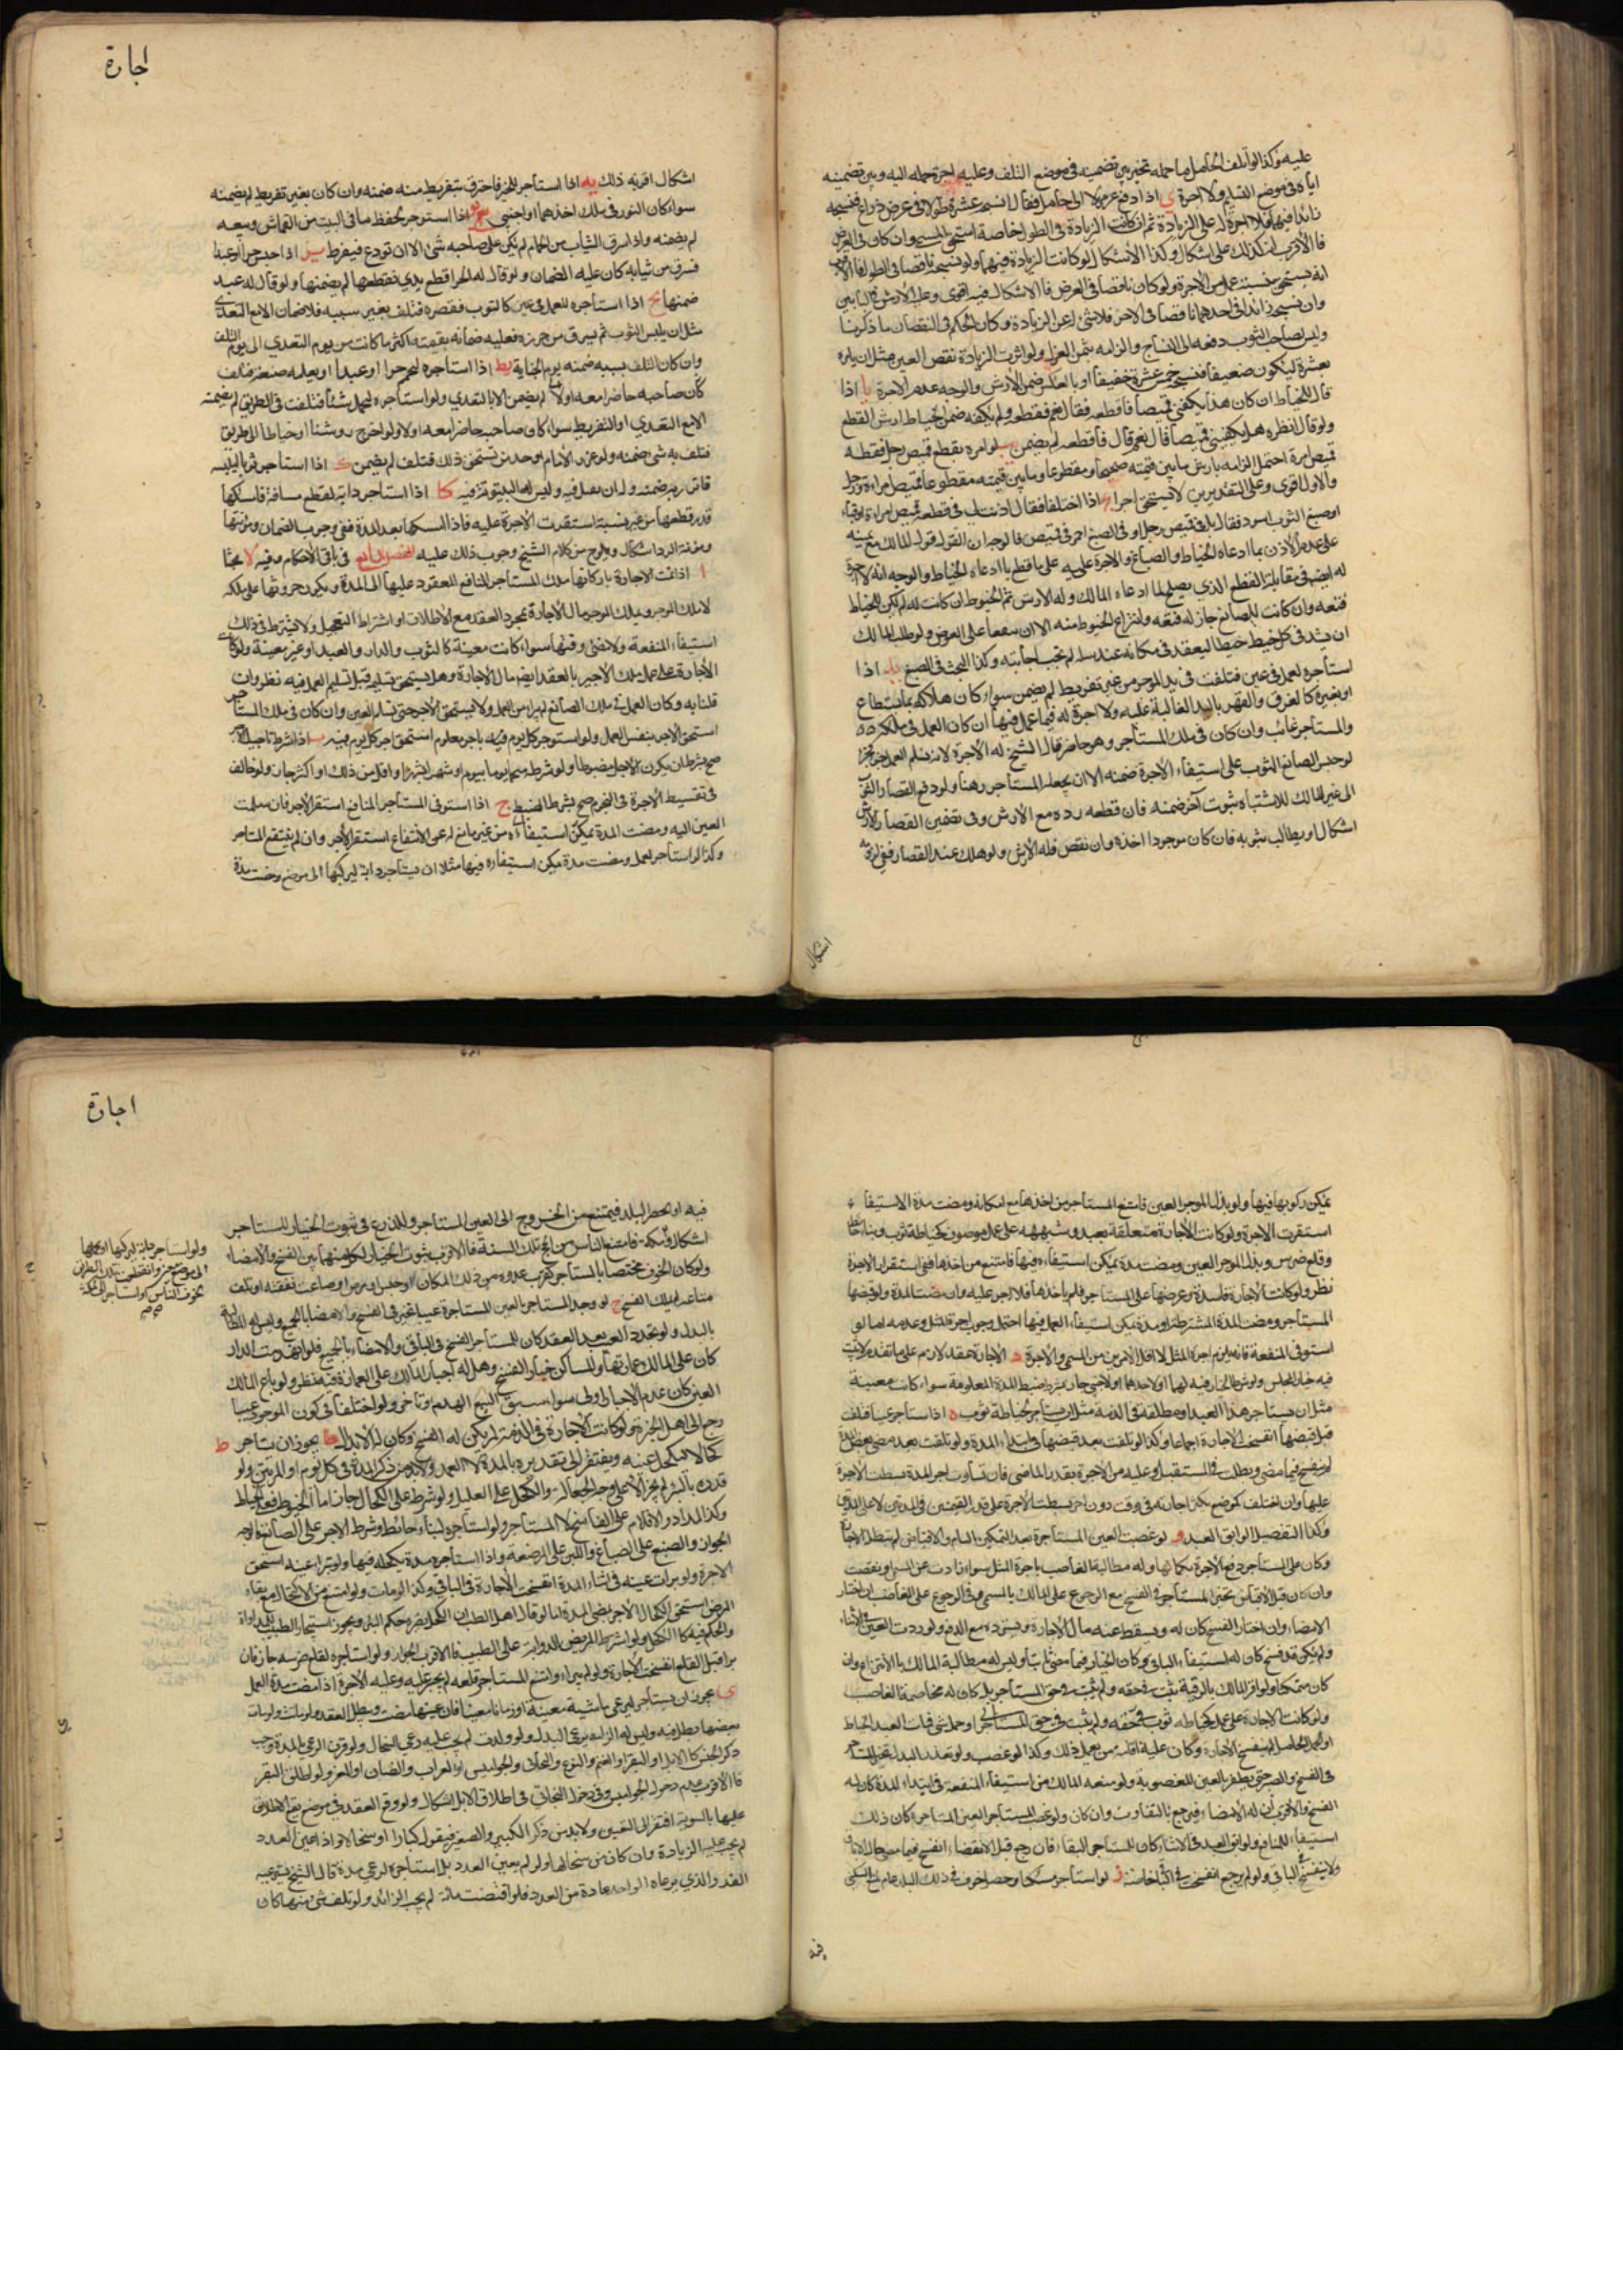 عليه وكذا لو أتلف الحامل ما حمله تخير بين تضمينه في موضع التلف وعليه اجرة حمله اليه وبين تضمينه
اياه في موضع التسليم ولا اجرة ى اذا دفع غزلا الى حامل فقال انسجه عشرة طولا في عرض ذراع فنسجه
زائدا فيهما فلا اجرة له على الزيادة ثم ان كانت الزيادة في الطول خاصة استحق المسمى وان كان في العرض
فالاقرب انه كذلك على اشكال وكذا الاشكال لو كانت الزيادة فيهما ولو نسجه ناقصا في الطول فالاقرب
انه يستحق بنسبة عمله من الاجرة ولو كان ناقصا في العرض فالاشكال فيه اقوى وعليه الارش
وان نسجه زائدا في احدهما ناقصا في الاخر فلا شئ له عن الزيادة وكان الحكم في النقصان ما ذكرنا
وليس لصاحب الثوب دفعه الى النساج والزامه بثمن الغزل ولو اثرت الزيادة نقص العين مثل ان يامره
بعشرة ليكون صفيقا فنسج خمسة عشر خفيفا او بالعكس ضمن الارش والوجه عدم الاجرة يا اذا
قال للخياط ان كان هذا يكفي قميصا فاقطعه فقال نعم فقطعه ولم يكفه ضمن الخياط ارش القطع
ولو قال انظر هل يكفيني قميصا فقال نعم قال فاقطعه لم يضمن يب لو امره بقطع قميص رجل فقطعه
قميص امرة احتمل الزامه بارش ما بين قيمته صحيحا ومقطوعا وما بين قيمته مقطوعا قميص امراة ورجل
والاول اقوى وعلى التقديرين لا يستحق اجرا يج اذا اختلفا فقال اذنت لي في قطعه قميص امراة او قباء
او صبغ الثوب اسود فقال بل في قميص رجل او في الصبغ احمر في قميص فالوجه ان القول قول المالك مع يمينه
على عدم الاذن بما ادعاه الخياط والصباغ والاجرة عليه على ما قطع بما ادعاه الخياط والوجه انه لا اجرة
له ايضا في مقابلة القطع الذي يصلح لما ادعاه المالك وله الارش ثم الخيوط ان كانت له لم يكن للخياط
فتقه وان كانت للصانع جاز له فتقه وانتزاع الخيوط منه الا ان يتفقا على العوض ولو طلب المالك
ان يشد في كل خيط خيطا ليعقد في مكانه عند سله لم تجب اجابته وكذا البحث في الصبغ يد اذا
استأجره لعمل في عين فتلفت في يد الموجر من غير تفريط لم يضمن سواء كان هلاكه بما يستطاع
او بغيره كالغرق والقهر باليد الغالبة عليه ولا اجرة له فيما عمل فيها ان كان العمل في ملكه
والمستاجر غائب وان كان في ملك المستأجر وهو حاضر قال الشيخ له الاجرة لانه تسلم العمل
لو حبس الصانع الثوب على استيفاء الاجرة ضمنه الا ان يجعله المستاجر رهنا ولو دفع القصار الثوب
الى غير المالك للاشتباه بثوب آخر ضمنه فان قطعه رده مع الارش وفي تضمين القصار الارش
اشكال او يطالب بثوبه فان كان موجودا اخذه وان نقص فله الارش ولو هلك عند القصار ففي لزومه
اشكال
اجارة
اشكال اقربه ذلك يه اذا استأجر للخبز فاحترق بتفريط منه ضمنه وان كان بغير تفريط لم يضمنه
سواء كان التنور في ملك احدهما او اجنبي يو اذا استوجر لحفظ ما في البيت من القماش وسعه
لم يضمنه واذا سرق الثياب من الحمام لم يكن على صاحبه شئ الا ان تودع فيفرط يز اذا حبس حرا او عبدا
فسرق من ثيابه كان عليه الضمان ولو قال له الحر اقطع يدي فقطعها لم يضمنها ولو قال له عبد
ضمنها يح اذا استأجره للعمل في عين كالثوب فقصره فتلف بغير سببه فلا ضمان الا مع التعدى
مثل ان يلبس الثوب ثم يسرق من حرزه فعليه ضمانه بقيمته اكثر ما كانت من يوم التعدي الى يوم التلف
وان كان التلف بسببه ضمنه يوم الجناية يط اذا استأجره ليحجم حرا او عبدا او يعلمه صنعة فتلف
كان صاحبه حاضرا معه او لا لم يضمن الا بالتعدي ولو استأجره ليحمل شيئا فتلفت في الطريق لم يضمنه
الا مع التعدي او التفريط سواء كان صاحبه حاضرا معه او لا ولو اخرج روشنا او خياطا الى طريق
فتلف به شئ ضمنه ولو عزر الامام او حد من يستحق ذلك فتلف لم يضمن ك اذا استأجر ثوبا ليلبسه
فاتزر به ضمنه وله ان يقيل فيه وليس له البيتوتة فيه كا اذا استاجر دابة لقطع مسافة فامسكها
قدر قطعها من غير نسبة استقرت الاجرة عليه فاذا امسكها بعد المدة ففي وجوب الضمان ومؤنتها
ومؤنة الرد اشكال ويلوح من كلام الشيخ وجوب ذلك عليه الفصل الرابع في باقي الاحكام وفيه لا بحثا
ا اذا تمت الاجارة باركانها ملك المستأجر المنافع المعقود عليها الى المدة ويكون حدوثها على ملكه
لا ملك الموجر ويملك الموجر مال الاجارة بمجرد العقد مع الاطلاق او اشتراط التعجيل ولا يشترط في ذلك
استيفاء المنفعة ولا مضي وقتها سواء كانت معينة كالثوب والدار والعبد او غير معينة ولو كانت
الاجارة على عمل ملك الاجير بالعقد ايضا مال الاجارة وهل يستحق تسليمه قبل تسليم العمل فيه نظر وان
قلنا به وكان العمل في ملك الصانع لم يبرا من العمل ولا يستحق الاجر حتى يسلم العين وان كان في ملك المستأجر
استحق الاجر بنفس العمل ولو استوجر كل يوم فيه باجر معلوم استحق اجر كل يوم فيه ب اذا شرط تأجيل الاجر
صح بشرط ان يكون الاجل مضبوطا ولو شرط منجما يوما بيوم او شهرا بشهر او اقل من ذلك او اكثر جاز ولو خالف
في تقسيط الاجرة في النجوم صح بشرط الضبط ج اذا استوفى المستأجر المنافع استقر الاجر فان سلمت
العين اليه ومضت المدة يمكن استيفاءه من غير مانع له عن الانتفاع استقر الاجر وان لم ينتفع المستاجر
وكذا لو استأجر لعمل ومضت مدة يمكن استيفاؤه فيها مثلا ان يستأجر دابة ليركبها الى موضع ومضت مدة
يمكن ركوبها فيها ولو بذل الموجر العين فامتنع المستأجر من اخذها مع امكانه ومضت مدة الاستيفاء
استقرت الاجرة ولو كانت الاجارة متعلقة بعبد وشبهه على عمل موصوف كخياطة ثوب وبناء حائط
وقلع ضرس وبذل الموجر العين ومضت مدة يمكن استيفاءه فيها فامتنع من اخذها ففي استقرار الاجرة
نظر ولو كانت الاجارة فاسدة وعرضها على المستأجر فلم يأخذها فلا اجر عليه وان مضت المدة ولو قبضها
المستأجر ومضت المدة المشترطة او مدة يمكن استيفاء العمل فيها احتمل وجوب اجرة المثل وعدمه اما لو
استوفى المنفعة فانه يلزم اجرة المثل لا اقل الامرين من المسمى والاجرة د الاجارة عقد لازم على ما تقدم لا يثبت
فيه خيار المجلس ولو شرط الخيار فيه لهما او لاحدهما او لاجنبي جاز بشرط ضبط المدة المعلومة سواء كانت معينة
مثل ان يستأجر هذا العبد او مطلقة في الذمة مثل ان يستأجر لخياطة ثوب ه اذا استأجر عينا فتلفت
قبل قبضها انفسخت الاجارة اجماعا وكذا لو تلفت بعد قبضها في ابتداء المدة ولو تلفت بعد مضي بعض المدة
لم ينفسخ فيما مضى وبطلت في المستقبل وعليه من الاجرة بقدر الماضي فان تساوت اجر المدة بسطت الاجرة
عليها وان اختلفت كموضع يكثر اجارته في وقت دون اخر بسطت الاجرة على قدر القيمتين في المدتين لا على المدتين
وكذا التفصيل لو ابق العبد و لو غصبت العين المستأجرة بعد التمكين التام والاقباض لم تبطل الاجارة
وكان على المستأجر دفع الاجرة بكمالها وله مطالبة الغاصب باجرة المثل سواء زادت عن المسمى او نقصت
وان كان قبل الاقباض تخير المستأجر في الفسخ مع الرجوع على المالك بالمسمى وفي الرجوع على الغاصب ان اختار
الامضاء وان اختار الفسخ كان له ويسقط عنه مال الاجارة ويسترده مع الدفع ولو ردت العين في الاثناء
ولم يكن قد فسخ كان له استيفاء الباقي وكان الخيار فيما مضى ثابتا وليس له مطالبة المالك بالانتزاع وان
كان متمكنا ولو اقر المالك بالرقبة ثبت في حقه ولم يثبت في حق المستأجر بل كان له مخاصمة الغاصب
ولو كانت الاجارة على عمل كخياطة ثوب في ذمته ولم يثبت في حق المستأجر او حمل شئ فمات العبد الخياط
او الجمل الحامل لم ينفسخ الاجارة وكان عليه اقامة من يعمل ذلك وكذا لو غصب ولو تعذر البدل تخير المستأجر
في الفسخ والصبر حتى يظفر بالعين المغصوبة ولو منعه المالك من استيفاء المنفعة في ابتداء المدة كان له
الفسخ والاقرب ان له الامضاء فيرجع بالتفاوت وان كان ولو غصب المستأجر العين المستأجرة كان ذلك
استيفاء للمنافع ولو ابق العبد في الاثناء كان للمستأجر البقاء فان رجع قبل الانقضاء انفسخ فيما مضى حال الاباق
ولا ينفسخ في الباقي ولو لم يرجع انفسخت في ز لو استأجر مسكنا وحصل خوف في ذلك البلد عام السكنى
فيه
اجارة
فيه او بحصر البلد فيمتنع من الخروج الى العين المستأجر وللزرع في ثبوت الخيار للمستأجر
اشكال وكذا فامتنع الناس من الحج تلك السنة فالاقرب ثبوت الخيار لكل منهما بين الفسخ والامضاء
ولو كان الخوف مختصا بالمستأجر كقرب عدوه من ذلك المكان او حبس او مرض او ضاعت نفقته او تلف
متاعه لم يملك الفسخ ح لو وجد المستأجر بالعين المستأجرة عيبا تخير في الفسخ والامضاء بالجميع وليس له المطالبة
بالبدل ولو تجدد العيب بعد العقد كان للمستأجر الفسخ في الباقي والامضاء بالجميع فلو انهدمت الدار
كان على المالك عمارتها وللساكن خيار الفسخ وهل له اجبار المالك على العمارة فيه نظر ولو باع المالك
العين كان عدم الاجبار اولى سواء سبق البيع الهدم او تأخر ولو اختلفا في كون الموجود عيبا
رجع الى اهل الخبرة ولو كانت الاجارة في الذمة لم يكن له الفسخ وكان له الابدال ط يجوز ان يستأجر
كحالا ليكحل عينه ويفتقر الى تقديره بالمدة لا العمل ولا بد من ذكر المدة في كل يوم او المرتين ولو
قدره بالبرء لم يجز الا على وجه الجعالة والكحل على العليل ولو شرط على الكحال جاز اما الخيوط فعلى الخياط
وكذا المداد والاقلام على الناسخ لا المستأجر ولو استأجره لبناء حائط وشرط الاجر على الصانع فالوجه
الجواز والصبغ على الصباغ واللبن على المرضعة واذا استأجره مدة يكحله فيها ولم تبرا عينه استحق
الاجرة ولو برات عينه في اثناء المدة انفسخت الاجارة في الباقي وكذا لو مات ولو امتنع من الاكتحال مع بقاء
المرض استحق الكحال الاجر بمضي المدة اما لو قال اهل الطب ان الكحل يضره حكم البرء ويجوز استيجار الطبيب لمداواة
والحكم فيه كالكحل ولو اشترط المريض الدواء على الطبيب فالاقرب الجواز ولو استأجره لقلع ضرسه جاز فان
برا قبل القلع انفسخت الاجارة ولو لم يبراء وامتنع المستأجر قلعه لم يجبر عليه وعليه الاجرة اذا مضت مدة العمل
ى يجوز ان يستأجر ليرعى ماشية معينة او زمانا معينا فان عينها مضت ويبطل العقد ولو مات
بعضها بطل فيه وليس له الزامه برعي البدل ولو ولدت لم يجب عليه رعي السخال ولو قرن الرعي بالمدة وجب
ذكر الجنس كالابل او البقر او الغنم والنوع والبخاتي والجواميس او العراب والضان او المعز ولو اطلق البقر
فالاقرب عدم دخول الجواميس وفي دخول البخاتي في اطلاق الابل اشكال ولو وقع العقد في موضع يقع الاطلاق
عليها بالسوية افتقر الى التعيين ولا بد من ذكر الكبير والصغير فيقول كبارا او سخالا واذا عين العدد
لم يجب عليه الزيادة وان كان من سخالها ولو لم يعين العدد بل استأجره لرعي مدة قال الشيخ يسترعيه
القدر الذي يرعاه الواحد عادة من العدد فلو اقتضت مائة لم يجب الزائد ولو تلف شئ منها كان
ولو استاجر دابة ليركبها او يحملها
الى موضع معين فانقطعت تلك الطريق
لخوف الناس او استأجر الى مكة
صح